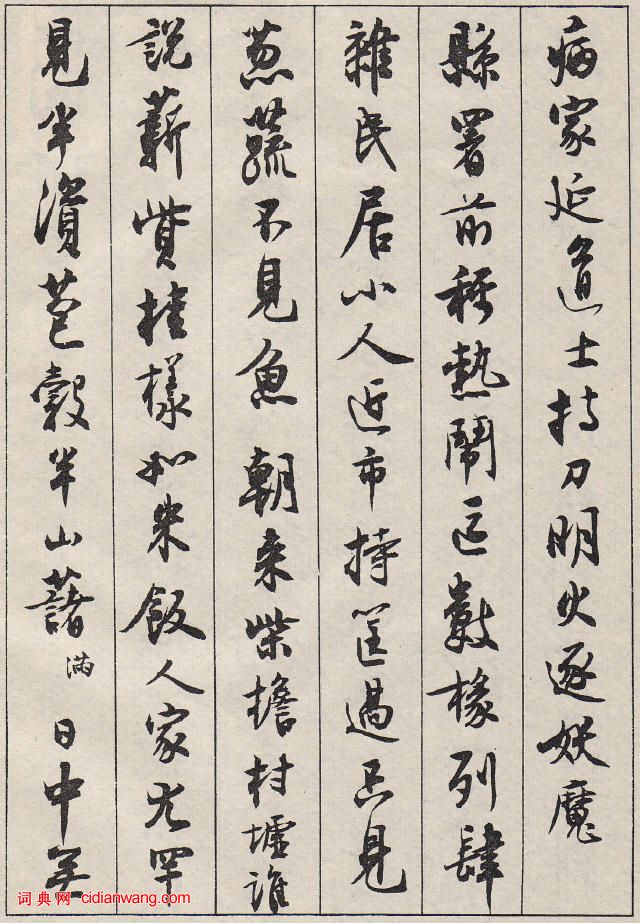 病家延道士持刀明火逐妖魔
縣署前稱熱鬧區數椽列肆
雜民居小人近市持筐過只見
葱蔬不見魚 朝來柴擔村墟誰
說薪貲桂樣如米飯人家尤罕
見半資苞穀半山藷 滿 日中
词典网 cidianwang.com